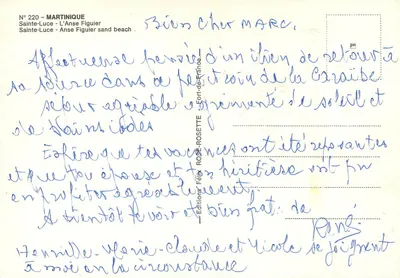 N° 220 – MARTINIQUE
Sainte-Luce - L'Anse Figuier
Sainte-Luce - Anse Figuier sand beach
Bien cher MARC,
Affectueuse pensée d'un ilien de retour à
sa source dans ce petit coin de la Caraïbe
séjour agréable agrémenté de soleil et
de bains
J'espère que tes vacances ont été reposantes
et que ton épouse et ton héritière ont pu
en profiter agréablement.
A bientôt te voir et bien frat. de
René
Marie-Claude et Nicole se joignent
à moi en la circonstance
Editions Félix ROSE-ROSETTE - Fort-de-France